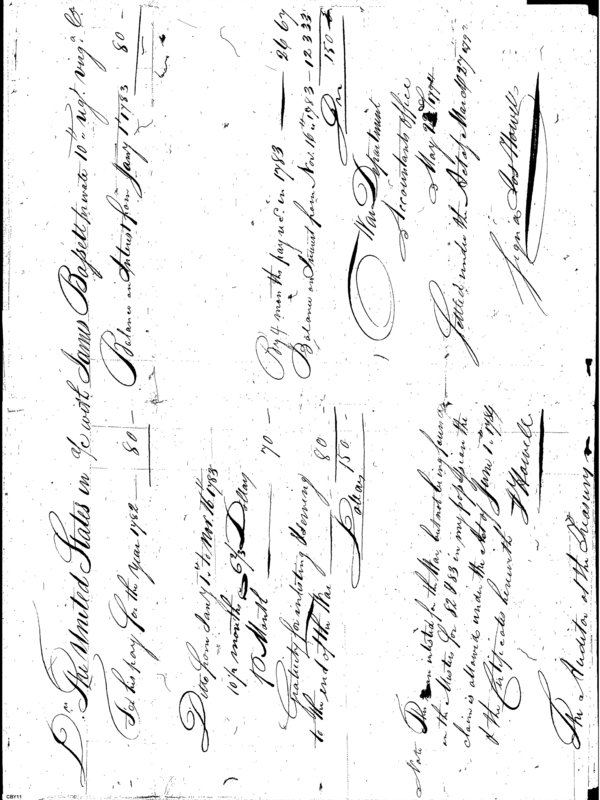 Dr. The United States in a/c with James Bassett private 10th regt. Virga. Cr.
To his pay for the Year 1782 — 80 —
Balance on Interest from Jany 1. 1783 80 —
Ditto from Jany 1. to Nov. 15 1783
10½ months @ 6⅔ Dollars
⅌ Month — 70 —
Gratuity for enlisting & serving
to the end of the War 80
Dollars 150 —
By 4 months pay recd. in 1783 — 26 67
Balance on Interest from Nov. 16th 1783 — 123 33
150
War Department
Accountants Office
May 1794
Settled under the Act of March 27 1792
Signed Jos Howell
Note This man enlisted for the War, but not being found
on the Musters for 82 & 83 in my possession the
claim is allowed under the Act of
of the Certificates herewith June 1. 1794
J Howell
The Auditor of the Treasury
CBY11